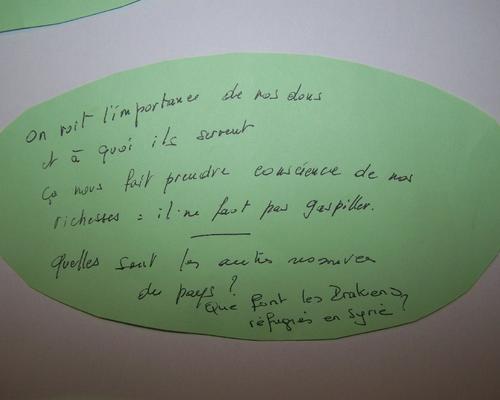 On voit l'importance de nos dons
et à quoi ils servent
ça nous fait prendre conscience de nos
richesses = il ne faut pas gaspiller.
Quelles sont les autres ressources
du pays ?
Que font les Irakiens
réfugiés en Syrie ?